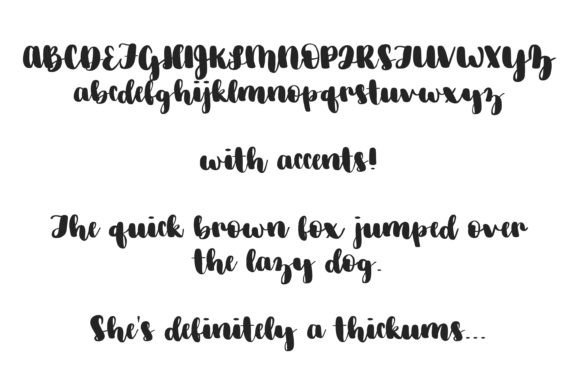 ABCDEFGHIJKLMNOPQRSTUVWXYZ
abcdefghijklmnopqrstuvwxyz
with accents!
The quick brown fox jumped over
the lazy dog.
She's definitely a thickums...